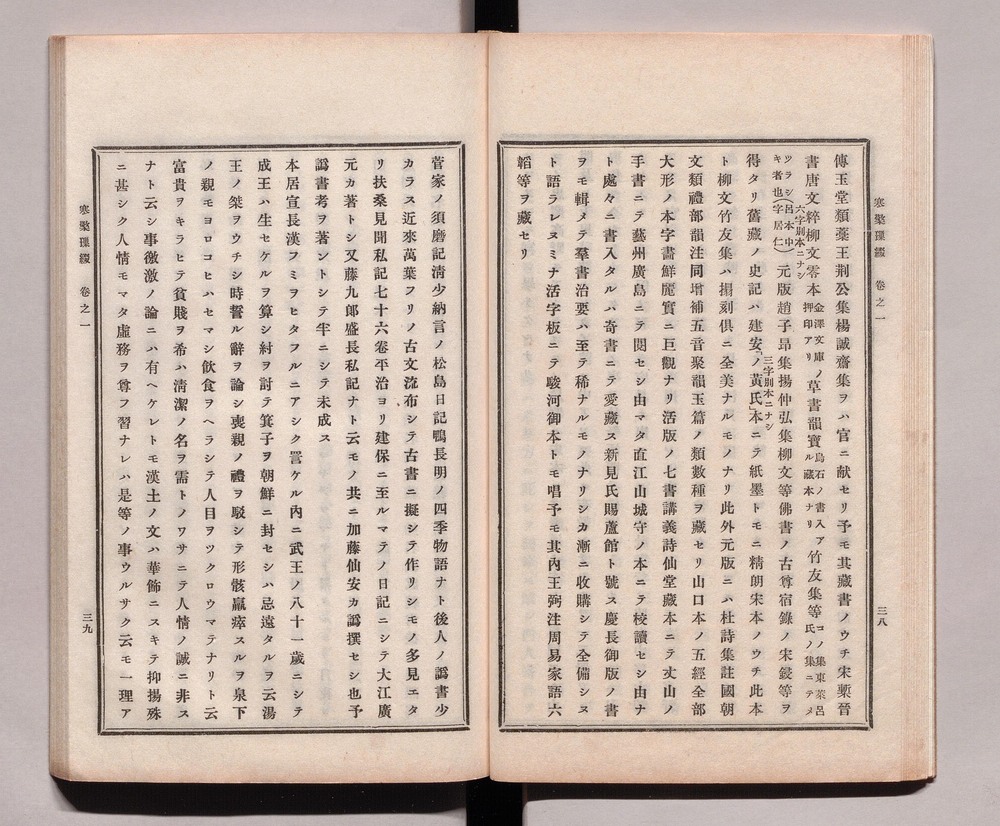 寒檠璅綴 卷之一
三八
傳玉堂類藁王荆公集楊誠齋集ヲハ官ニ献セリ予モ其藏書ノウチ宋槧晉
書唐文粹柳文零本金澤文庫ノ押印アリ草書韻寶烏石ノ書入アル藏本ナリ竹友集等コノ集東萊呂氏ノ集ニテメ
ツラシ呂本中キ者也(字居仁)六字別本ニナシ元版趙子昂集揚仲弘集柳文等佛書ノ古尊宿錄ノ宋鋟等ヲ
得タリ舊藏ノ史記ハ建安「ノ黃氏」三字別本ニナシ本ニテ紙墨トモニ精朗宋本ノウチ此本
ト柳文竹友集ハ搨刻俱ニ全美ナルモノナリ此外元版ニハ杜詩集註國朝
文類禮部韻注同增補五音聚韻玉篇ノ類數種ヲ藏セリ山口本ノ五經全部
大形ノ本字畵鮮麗實ニ巨觀ナリ活版ノ七書講義詩仙堂藏本ニテ丈山ノ
手書ニテ藝州廣島ニテ閱セシ由マタ直江山城守ノ本ニテ校讀セシ由ナ
ト處々ニ書入タルハ奇書ニテ愛藏ス新見氏賜蘆館ト號ス慶長御版ノ書
ヲモ輯メテ羣書治要ハ至テ稀ナルモノナリシカ漸ニ收購シテ全備シヌ
ト語ラレヌミナ活字板ニテ駿河御本トモ唱予モ其內王弼注周易家語六
韜等ヲ藏セリ
菅家ノ須磨記淸少納言ノ松島日記鴨長明ノ四季物語ナト後人ノ譌書少
カラス近來萬葉フリノ古文流布シテ古書ニ擬シテ作リシモノ多見エタ
リ扶桑見聞私記七十六卷平治ヨリ建保ニ至ルマテノ日記ニシテ大江廣
元カ著トシ又藤九郞盛長私記ナト云モノ共ニ加藤仙安カ譌撰セシ也予
譌書考ヲ著ントシテ牢ニシテ未成ス
本居宣長漢フミヲヒタフルニアシク詈ケル內ニ武王ノ八十一歲ニシテ
成王ハ生セケルヲ算シ紂ヲ討テ箕子ヲ朝鮮ニ封セシハ忌遠タルヲ云湯
王ノ桀ヲウチシ時誓ル辭ヲ論シ喪親ノ禮ヲ駁シテ形骸羸瘁スルヲ泉下
ノ親モヨロコヒハセマシ飮食ヲヘラシテ人目ヲツクロウマテナリト云
富貴ヲキラヒテ貧賤ヲ希ハ淸潔ノ名ヲ需トノワサニテ人情ノ誠ニ非ス
ナト云シ事徼激ノ論ニハ有ヘケレトモ漢土ノ文ハ華飾ニスキテ抑揚殊
ニ甚シク人情モマタ虛務ヲ尊フ習ナレハ是等ノ事ウルサク云モ一理ア
寒檠璅綴 卷之一
三九